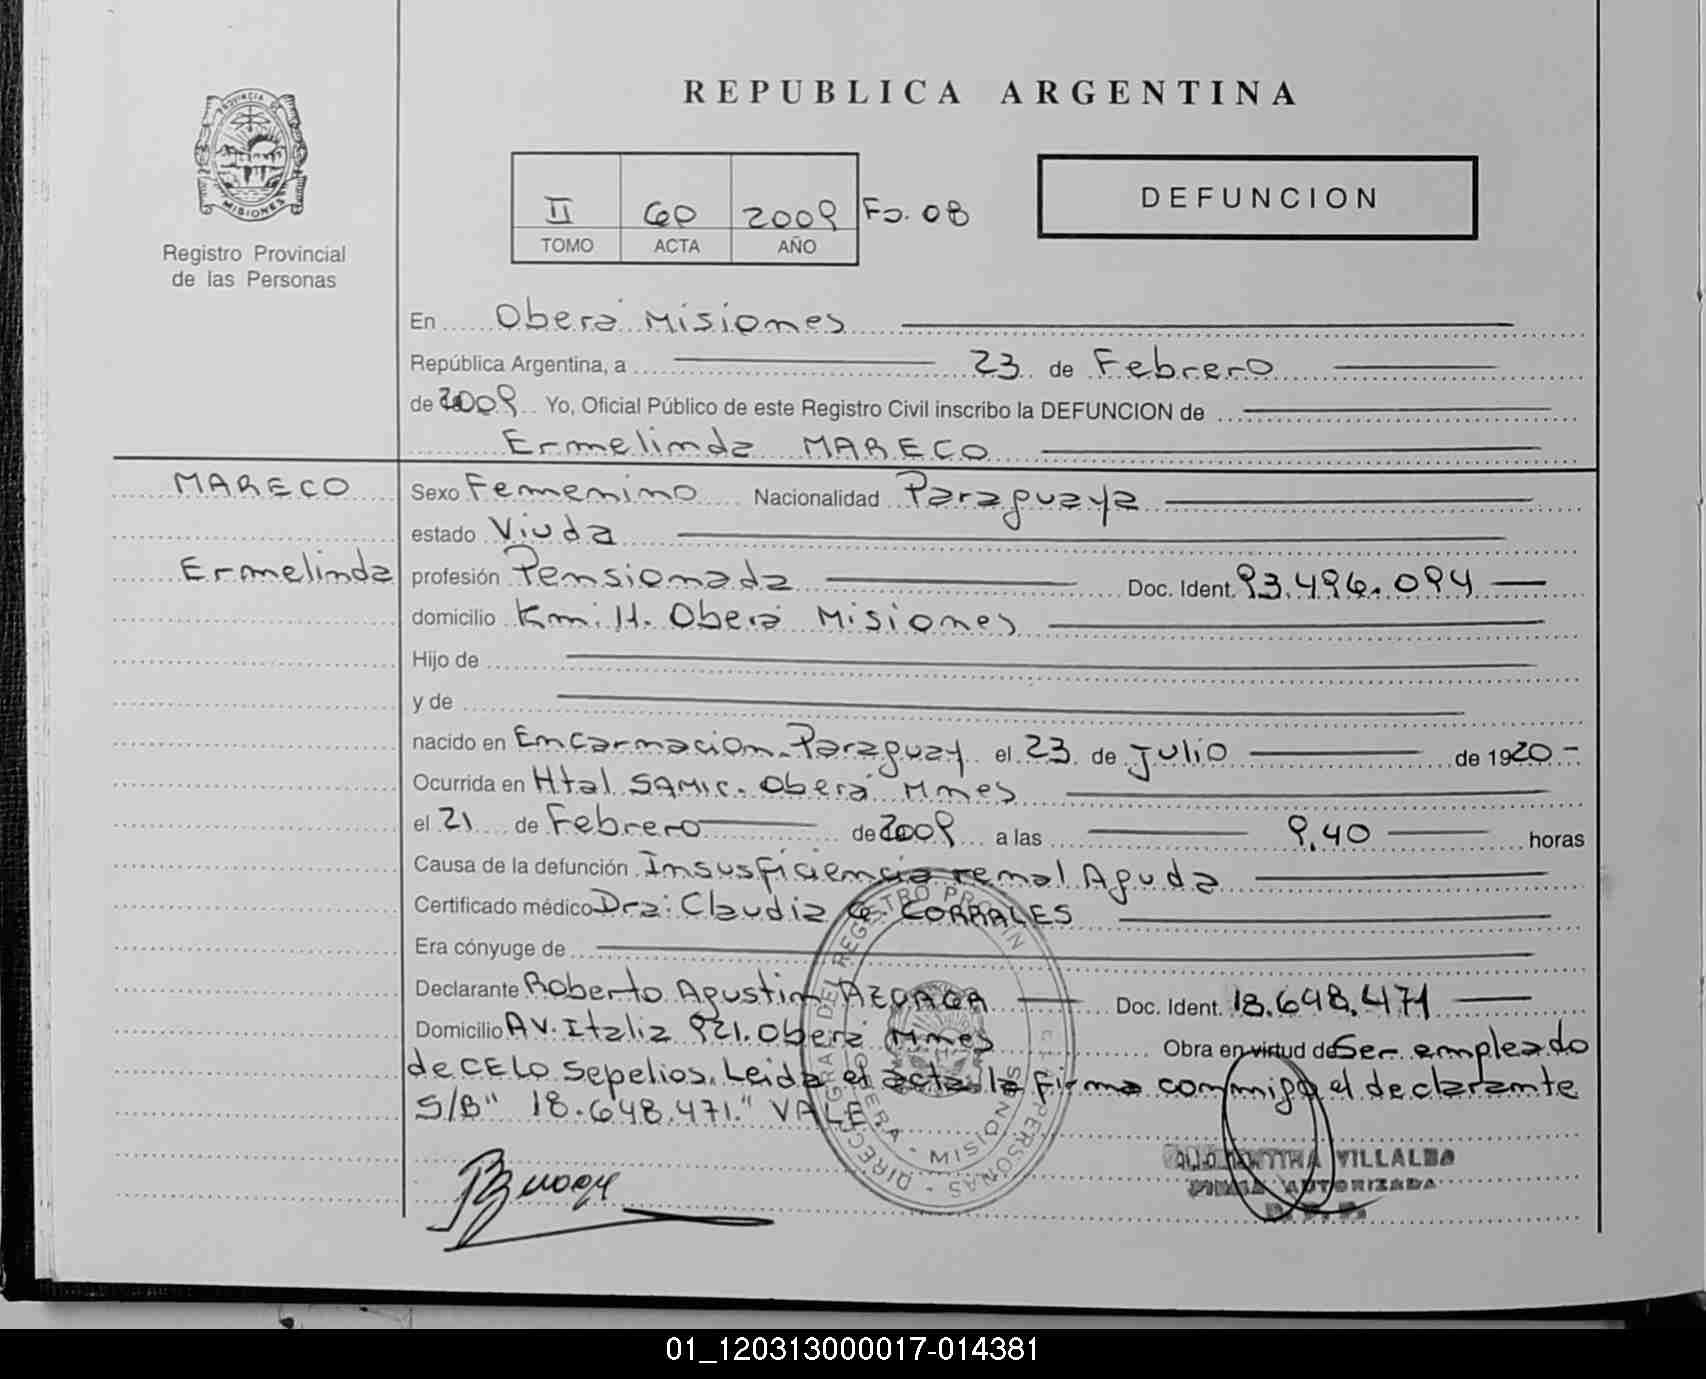 PROVINCIA DE
MISIONES
Registro Provincial
de las Personas
REPUBLICA ARGENTINA
II 60 2009 Fo. 08
TOMO ACTA AÑO
DEFUNCION
En Oberá Misiones
República Argentina, a 23 de Febrero
de 2009 Yo, Oficial Público de este Registro Civil inscribo la DEFUNCION de
Ermelinda MARECO
MARECO
Ermelinda
Sexo Femenino Nacionalidad Paraguaya
estado Viuda
profesión Pensionada Doc. Ident. 93.496.094
domicilio Km. 11. Oberá Misiones
Hijo de
y de
nacido en Encarnacion. Paraguay el 23 de Julio de 1920-
Ocurrida en Htal SAMIC. Oberá Mnes
el 21 de Febrero de 2009 a las 9,40 horas
Causa de la defunción Insusficiencia renal Aguda
Certificado médico Dra: Claudia G. CORRALES
Era cónyuge de
Declarante Roberto Agustin AZUAGA Doc. Ident. 18.648.471
Domicilio AV. Italia 921. Oberá Mnes Obra en virtud de Ser empleado
de CELO Sepelios. Leida el acta la firma conmigo el declarante
S/B" 18.648.471." VALE
VILLALBA
FIRMA AUTORIZADA
01_120313000017-014381